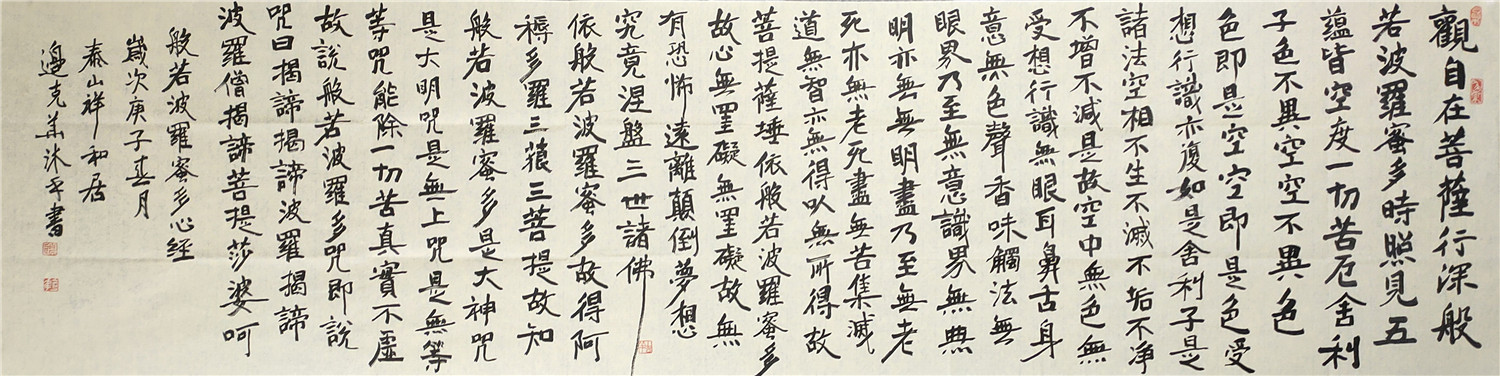 觀自在菩薩行深般
若波羅蜜多時照見五
蘊皆空度一切苦厄舍利
子色不異空空不異色
色即是空空即是色受
想行識亦復如是舍利子是
諸法空相不生不滅不垢不淨
不增不減是故空中無色無
受想行識無眼耳鼻舌身
意無色聲香味觸法無
眼界乃至無意識界無無
明亦無無明盡乃至無老
死亦無老死盡無苦集滅
道無智亦無得以無所得故
菩提薩埵依般若波羅蜜多
故心無罣礙無罣礙故無
有恐怖遠離顛倒夢想
究竟涅盤三世諸佛
依般若波羅蜜多故得阿
耨多羅三藐三菩提故知
般若波羅蜜多是大神咒
是大明咒是無上咒是無等
等咒能除一切苦真實不虛
故說般若波羅多咒即說
咒曰揭諦揭諦波羅揭諦
波羅僧揭諦菩提莎婆呵
般若波羅蜜多心經
歲次庚子春月
泰山祥和居
邊克沐手書